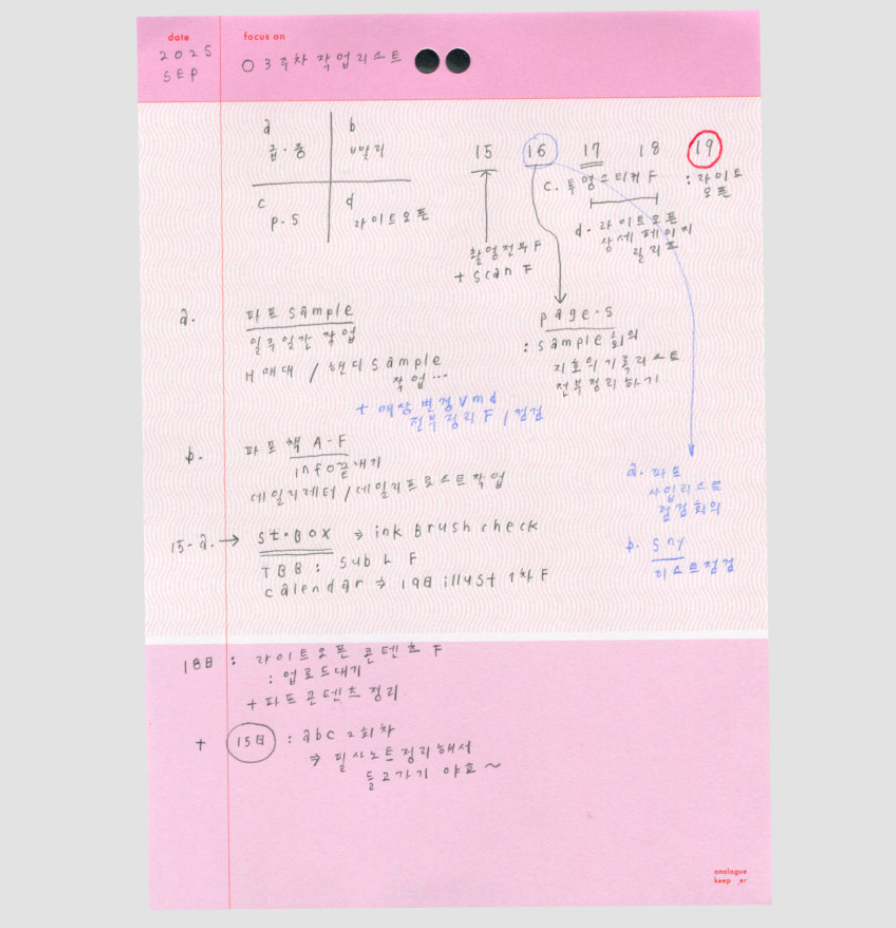 date
focus on
2025
SEP
○ 3주차 작업리스트
a
급·중
b
c
P.S
d
라이트오픈
15 16 17 18 19
C. 투명스티커 F
: 라이트
오픈
d. 라이트오픈
상세페이지
릴리즈
촬영전부 F
+ scan F
page.s
: sample 회의
지호의 기록리스트
전부정리하기
a.
파도 sample
일주일간 작업
H 애대 / 핸디 sample
작업...
+ 매장 변경 Vmd
전부정리 F / 점검
b.
파도 책 A-F
info 끝내기
데일리레터 / 데일리프로스트작업
15-a. → St·BOX ⇒ ink Brush check
TBB : Sub L F
calendar ⇒ 19日 illust 1차 F
a. 파도
사입리스트
점검회의
b. Sny
리스트점검
18日 : 라이트오픈 콘텐츠 F
: 업로드대기
+ 파도콘텐츠정리
+ 15日 : abc 2회차
⇒ 필사노트정리해서
들고가기 야호~
analogue
keeper